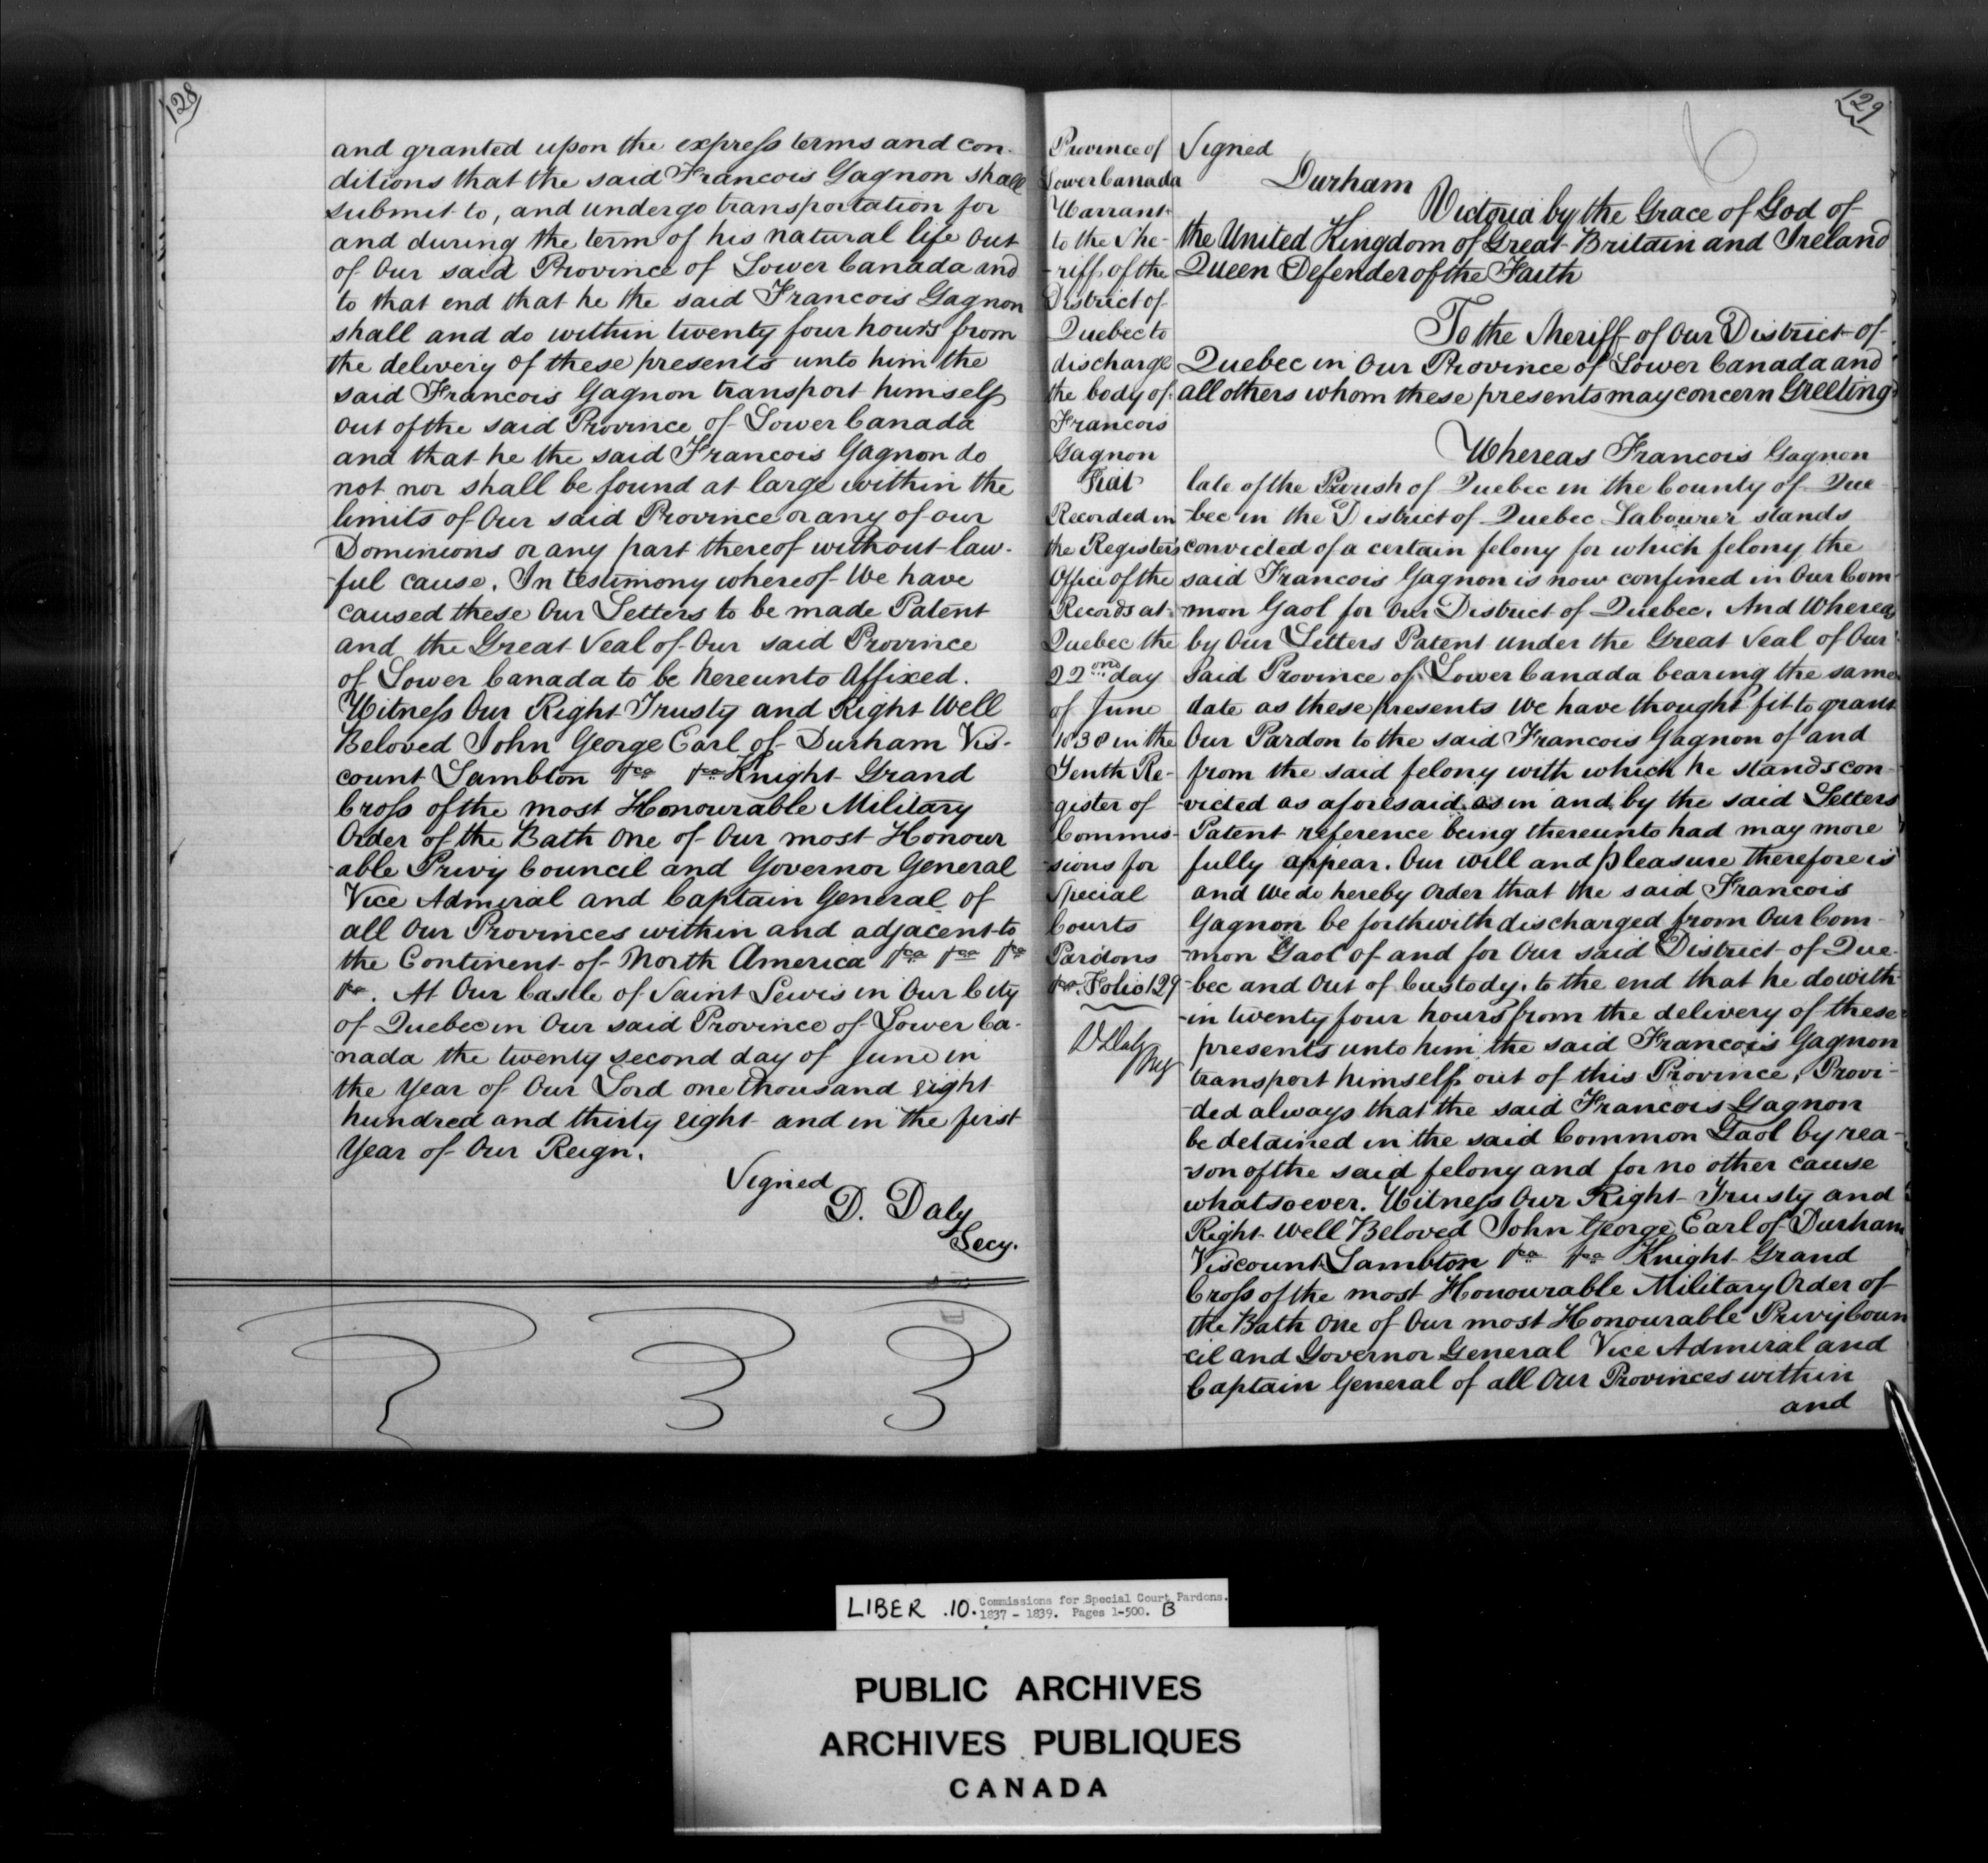 128
and granted upon the express terms and con-
ditions that the said Francois Gagnon shall
submit to, and undergo transportation for
and during the term of his natural life out
of Our said Province of Lower Canada and
to that end that he the said Francois Gagnon
shall and do within twenty four hours from
the delivery of these presents unto him the
said Francois Gagnon transport himself
out of the said Province of Lower Canada
and that he the said Francois Gagnon do
not nor shall be found at large within the
limits of Our said Province or any of our
Dominions or any part thereof without law-
-ful cause. In testimony whereof We have
caused these Our Letters to be made Patent
and the Great Seal of Our said Province
of Lower Canada to be hereunto Affixed.
Witness Our Right Trusty and Right Well
Beloved John George Earl of Durham Vis-
count Lambton &ca &ca Knight Grand
Cross of the most Honourable Military
Order of the Bath One of Our most Honour
-able Privy Council and Governor General
Vice Admiral and Captain General of
all Our Provinces within and adjacent to
the Continent of North America &ca &ca &ca
&ca. At Our Castle of Saint Lewis in Our City
of Quebec in Our said Province of Lower Ca-
-nada the twenty second day of June in
the Year of Our Lord one thousand eight
hundred and thirty eight and in the first
Year of Our Reign.
Signed
D. Daly
Secy.
129
Province of
Lower Canada
Warrant
to the She-
-riff of the
District of
Quebec to
discharge
the body of
Francois
Gagnon
Fiat
Recorded in
the Registers
Office of the
Records at
Quebec the
22nd day
of June
1838 in the
Tenth Re-
gister of
Commis-
-sions for
Special
Courts
Pardons
&ca. Folio 129
D Daly
Reg
Signed
Durham
Victoria by the Grace of God of
the United Kingdom of Great Britain and Ireland
Queen Defender of the Faith
To the Sheriff of Our District of
Quebec in Our Province of Lower Canada and
all others whom these presents may concern Greeting
Whereas Francois Gagnon
late of the Parish of Quebec in the County of Que
-bec in the District of Quebec Labourer stands
convicted of a certain felony for which felony the
said Francois Gagnon is now confined in Our Com
-mon Gaol for Our District of Quebec. And Whereas
by Our Letters Patent under the Great Seal of Our
said Province of Lower Canada bearing the same
date as these presents We have thought fit to grant
Our Pardon to the said Francois Gagnon of and
from the said felony with which he stands con-
-victed as aforesaid as in and by the said Letters
Patent reference being thereunto had may more
fully appear. Our will and pleasure therefore is
and We do hereby Order that the said Francois
Gagnon be forthwith discharged from Our Com-
-mon Gaol of and for Our said District of Que-
-bec and Out of Custody, to the end that he do with
-in twenty four hours from the delivery of these
presents unto him the said Francois Gagnon
transport himself out of this Province, Provi-
-ded always that the said Francois Gagnon
be detained in the said Common Gaol by rea-
-son of the said felony and for no other cause
whatsoever. Witness Our Right Trusty and
Right Well Beloved John George Earl of Durham
Viscount Lambton &ca &ca Knight Grand
Cross of the most Honourable Military Order of
the Bath One of Our most Honourable Privy Coun
-cil and Governor General Vice Admiral and
Captain General of all Our Provinces within
and
LIBER .10. Commissions for Special Court Pardons.
1837 - 1839. Pages 1-500. B
PUBLIC ARCHIVES
ARCHIVES PUBLIQUES
CANADA